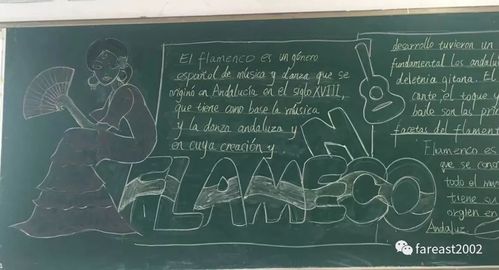 El flamenco es un género
español de música y danza que se
originó en Andalucía en el siglo XVIII,
que tiene como base la música
y la danza andaluza y
en cuya creación y
desarrollo tuvieron un
fundamental los andalu
deletnia gitana. El
cante, el toque y
baile son las prin
facetas del flamen
Flamenco es
que se cono
todo el mu
tiene su
origen en
Andaluz
FLAMENCO
fareast2002